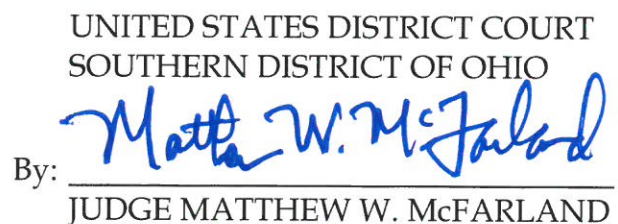 UNITED STATES DISTRICT COURT
SOUTHERN DISTRICT OF OHIO
Matthew W. McFarland
By:
JUDGE MATTHEW W. McFARLAND